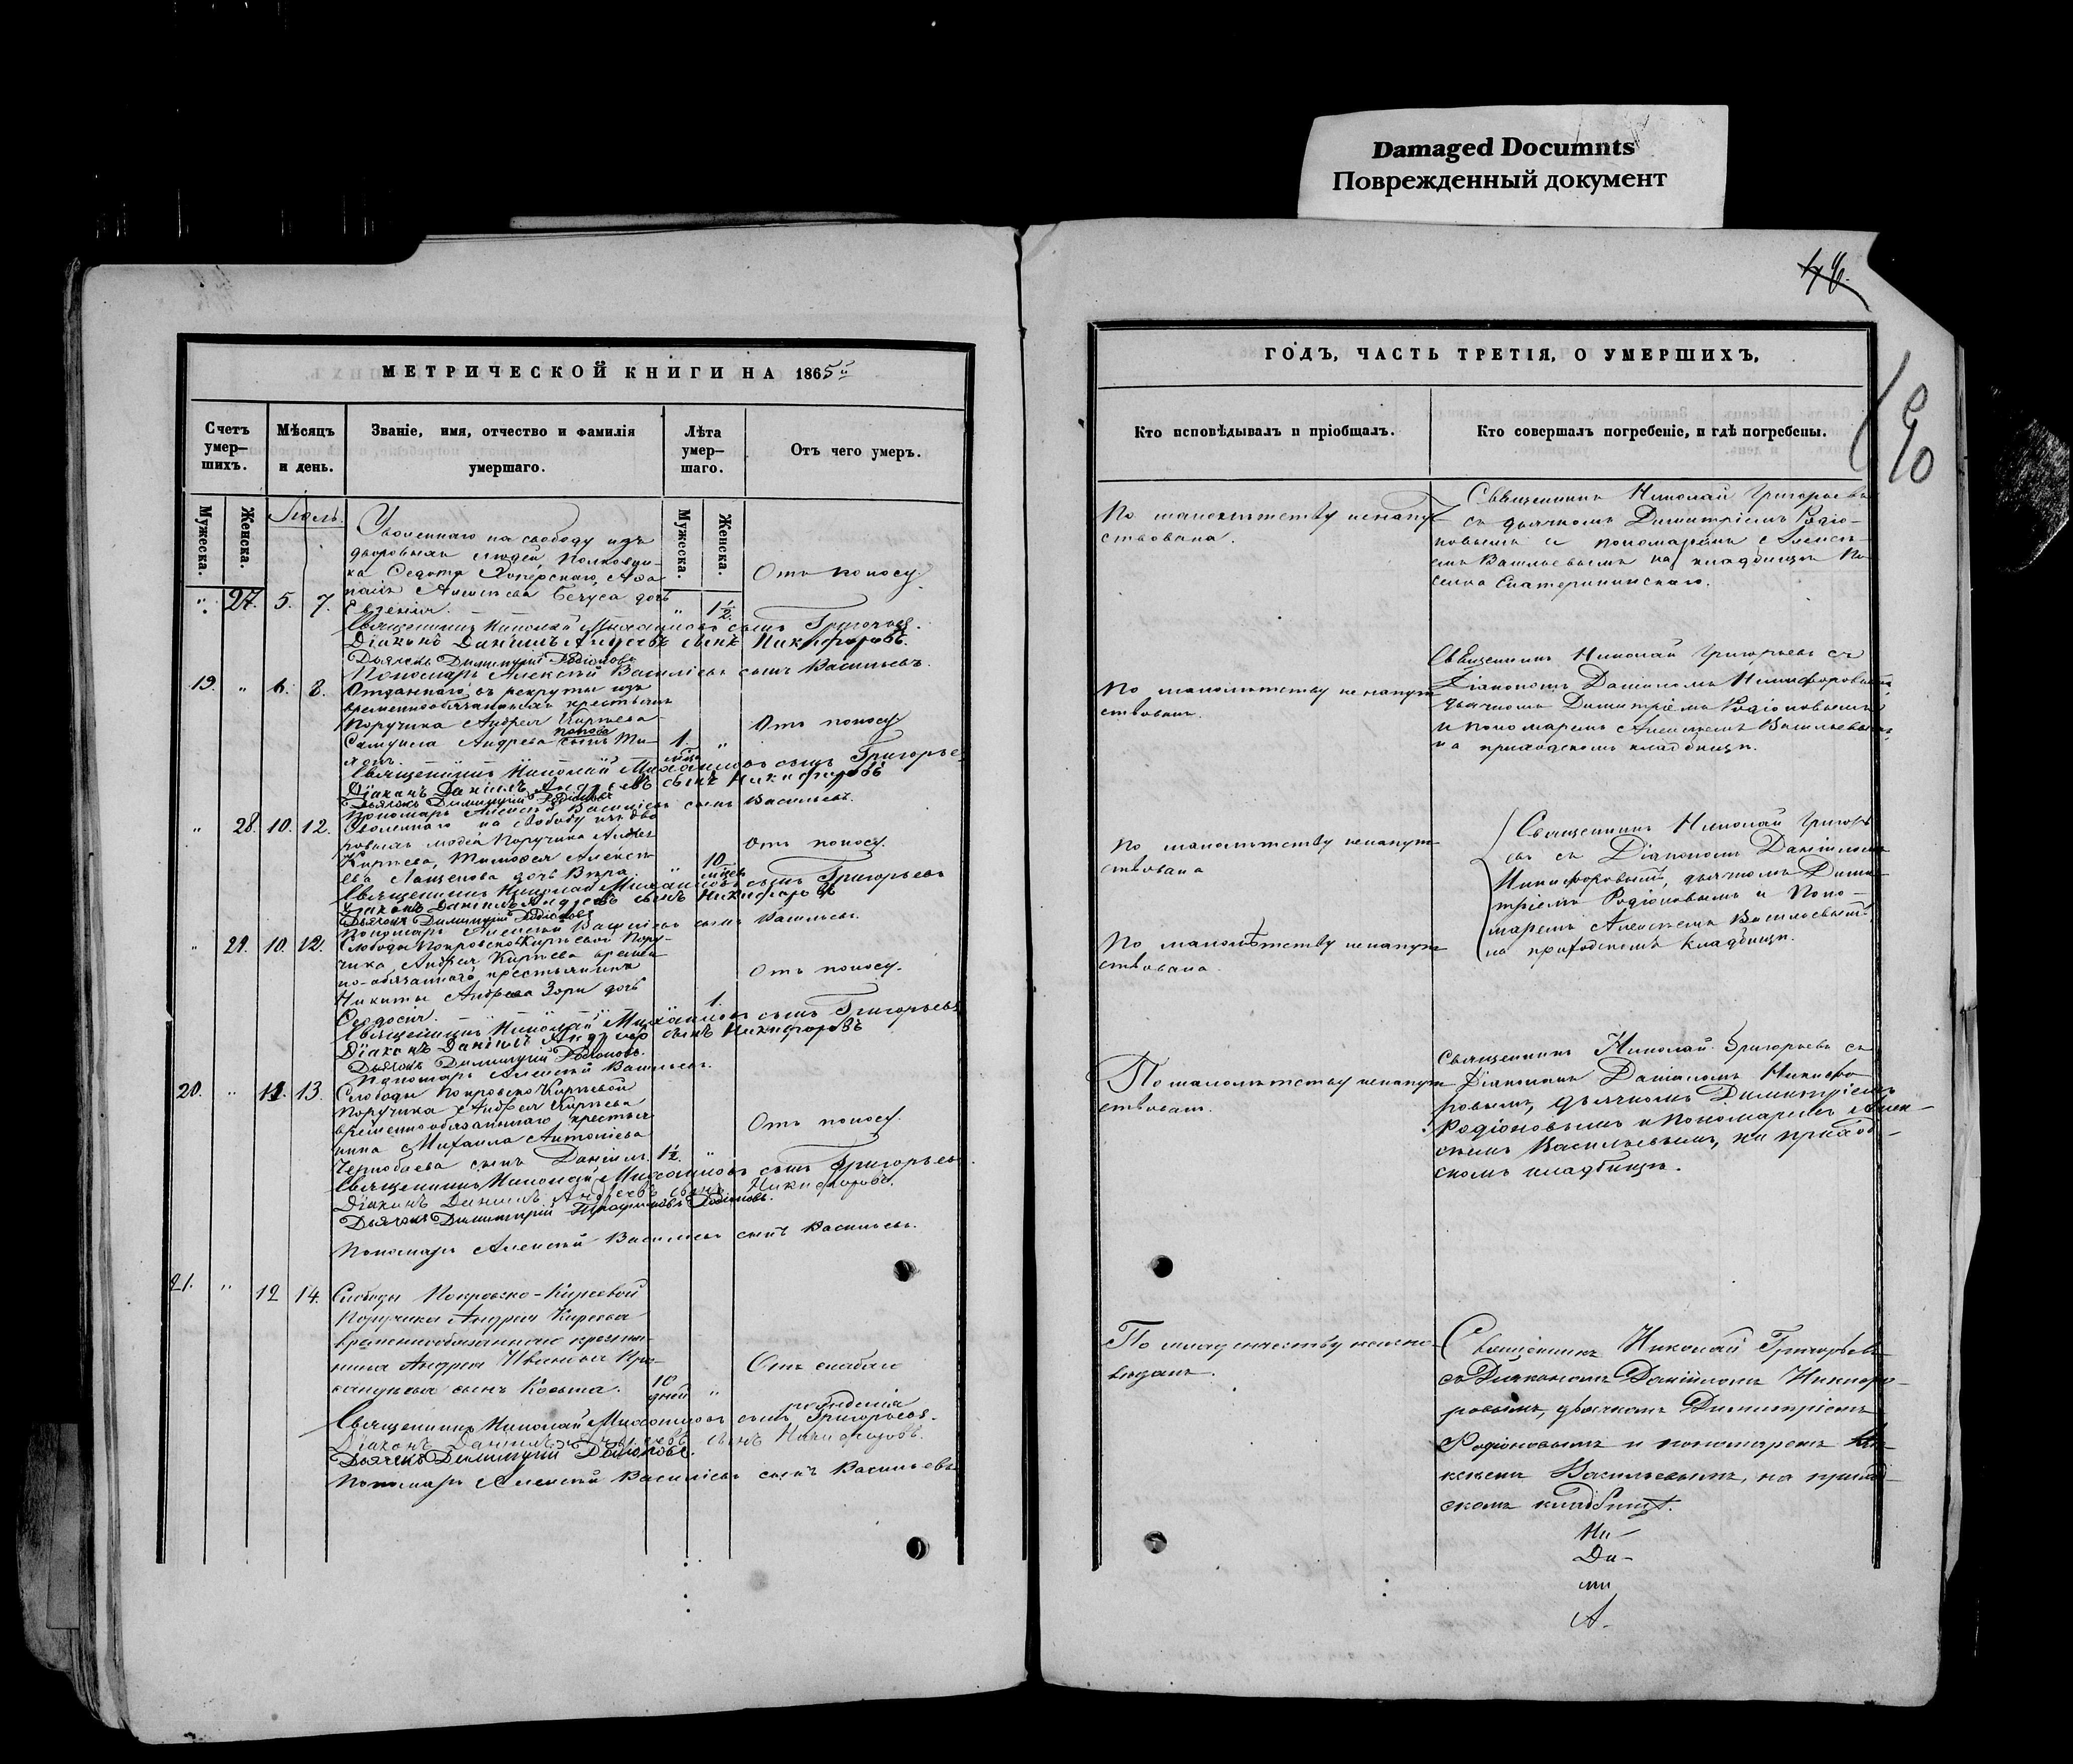 Damaged Documnts
Поврежденный документ
46.
90
МЕТРИЧЕСКОЙ КНИГИ НА 1865й
Счетъ умер–шихъ.
Мѣсяцъ и день.
Званіе, имя, отчество и фамилія умершаго.
Лѣта умер–шаго.
Отъ чего умеръ.
Мужеска.
Женска.
Мужеска.
Женска.
Іюль.
Уволеннаго на свободу изъ
дворовыхъ людей, Полковни-
ка Федота Хоперскаго, Афа
" 27. 5. 7.
дочь
Евгенія. " 1½
Отъ поносу.
Священникъ Николай Михаиловъ сынъ Григорьев
Діаконъ Даніилъ Андреевъ сынъ Никифоровъ.
Дьячокъ Димитрій Родіоновъ
Пономарь Алексѣй Васильевъ сынъ Васильевъ.
19. " 6. 8. Отданнаго въ рекруты изъ
временнообязанныхъ крестьянъ
Поручика Андрея Кирѣева
Попова
Самуила Андреева сынъ Ти-
1. "
Отъ поносу
Священникъ Николай Михаиловъ сынъ Григорье
Діаконъ Даніилъ Андреевъ сынъ Никифоровъ
Дьячокъ Димитрій Родіоновъ
Пономарь Алексѣй Васильевъ сынъ Васильевъ.
" 28. 10. 12. Уволеннаго на свободу изъ дво
ровыхъ людей Поручика Андрея
Кирѣева, Тимофея Алексѣ
ева Лащенова дочь Вѣра. " 10
Отъ поносу.
Священникъ Николай Михаиловъ сынъ Григорьевъ
Діаконъ Даніилъ Андреевъ сынъ Никифоровъ
Дьячокъ Димитрій Родіоновъ
Пономарь Алексѣй Васильевъ сынъ Васильевъ.
" 29. 10. 12. Слободы Покровско-Кирѣевой Пору-
чика Андрея Кирѣева времен
но-обязаннаго крестьянина
Никиты Андреева Зори дочь
Ѳеодосія. 1.
Отъ поносу.
Священникъ Николай Михаиловъ сынъ Григорьевъ
Діаконъ Даніилъ Андреевъ сынъ Никифоровъ
Дьячокъ Димитрій Родіоновъ.
Пономарь Алексѣй Васильевъ.
20. " 11. 13. Слободы Покровско Кирѣевой
Поручика Андрея Кирѣева
временнообязаннаго крестья
нина Михаила Антоніева
Чернобаева сынъ Даніилъ. 1½. "
Отъ поносу.
Священникъ Николай Михаиловъ сынъ Григорьев
Діаконъ Даніилъ Андреевъ сынъ Никифоровъ.
Дьячокъ Димитрій Родіоновъ.
Пономарь Алексѣй Васильевъ сынъ Васильевъ.
21. " 12 14. Слободы Покровско-Кирѣевой
Поручика Андрея Кирѣева
временнообязаннаго крестья-
нина Андрея Иванова
сынъ Косьма. 10 дней "
Отъ слабаго рожденія
Священникъ Николай Михаиловъ сынъ Григорьевъ.
Діаконъ Даніилъ Андреевъ сынъ Никифоровъ.
Дьячокъ Димитрій Родіоновъ.
Пономарь Алексѣй Васильевъ сынъ Васильевъ
ГОДЪ, ЧАСТЬ ТРЕТІЯ, О УМЕРШИХЪ,
Кто исповѣдывалъ и пріобщалъ.
Кто совершалъ погребеніе, и гдѣ погребены.
По малолѣтству ненапут
ствована.
Священникъ Николай Григорьевъ
съ дьячкомъ Димитріемъ Родіо-
новымъ и пономаремъ Алексѣ-
емъ Васильевымъ на кладбищѣ По
селка Екатерининскаго.
По малолѣтству ненапут
ствованъ.
Священникъ Николай Григорьевъ съ
Діакономъ Даніиломъ Никифоровымъ
дьячкомъ Димитріемъ Родіоновымъ
и пономаремъ Алексѣемъ Васильевымъ
на приходскомъ кладбищѣ.
По малолѣтству ненапут
ствована
Священникъ Николай Григорь
евъ съ Діакономъ Даніиломъ
Никифоровымъ, дьячкомъ Дими
тріемъ Родіоновымъ и Поно-
маремъ Алексѣемъ Васильевымъ
на приходскомъ кладбищѣ.
По малолѣтству ненапут
ствована.
По малолѣтству ненапут
ствованъ.
Священникъ Николай Григорьевъ съ
Діакономъ Даніиломъ Никифо
ровымъ, дьячкомъ Димитріемъ
Родіоновымъ и Пономаремъ Алек-
сѣемъ Васильевымъ, на приход-
скомъ кладбищѣ.
По младенчеству неиспо-
вѣданъ.
Священникъ Николай Григорьевъ
съ Діакономъ Даніиломъ Никифо-
ровымъ, дьячкомъ Димитріемъ
Родіоновымъ и пономаремъ Але-
ксѣемъ Васильевымъ, на приход-
скомъ кладбищѣ.
Ни-
Да-
ми
А.